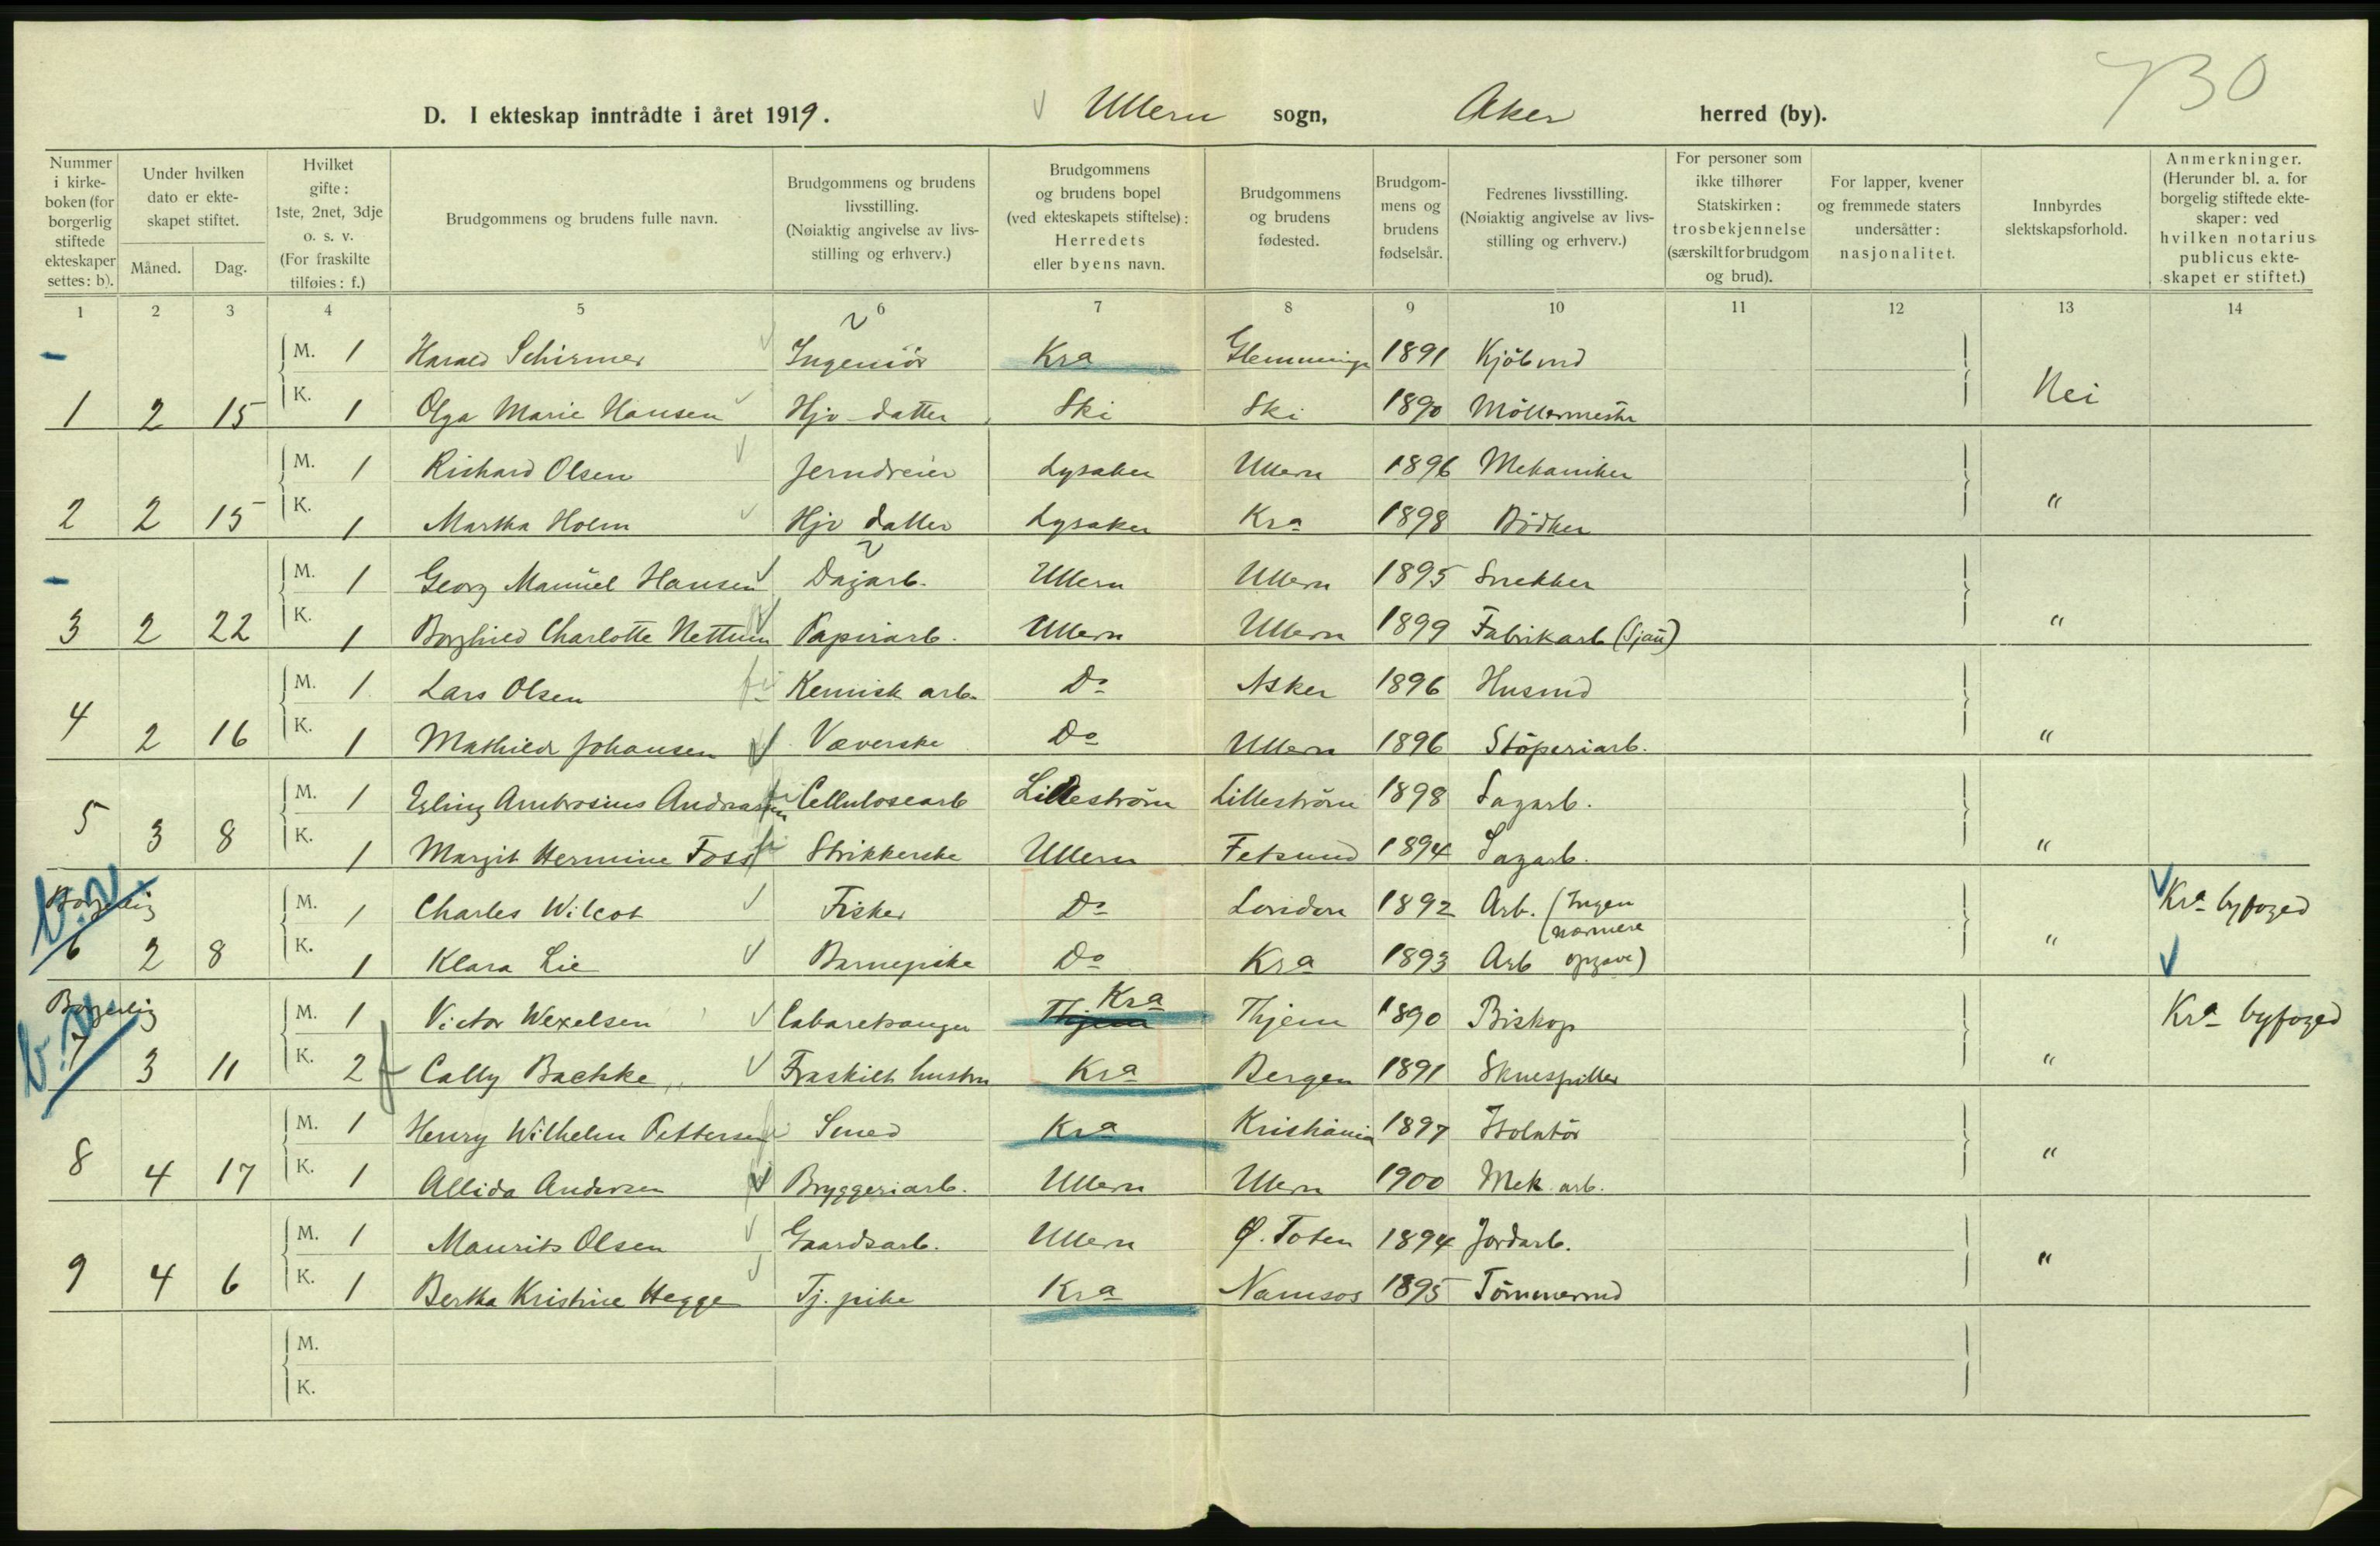 730
D. I ekteskap inntrådte i året 1919. Ullern sogn, Aker herred (by).
Nummer i kirkeboken (for borgerlig stiftede ekteskaper settes: b).
Under hvilken dato er ekteskapet stiftet.
Måned. Dag.
Hvilket gifte: 1ste, 2net, 3dje o. s. v. (For fraskilte tilføies: f.)
Brudgommens og brudens fulle navn.
Brudgommens og brudens livsstilling. (Nøiaktig angivelse av livsstilling og erhverv.)
Brudgommens og brudens bopel (ved ekteskapets stiftelse): Herredets eller byens navn.
Brudgommens og brudens fødested.
Brudgommens og brudens fødselsår.
Fedrenes livsstilling. (Nøiaktig angivelse av livsstilling og erhverv.)
For personer som ikke tilhører Statskirken: trosbekjennelse (særskilt for brudgom og brud).
For lapper, kvener og fremmede staters undersåtter: nasjonalitet.
Innbyrdes slektskapsforhold.
Anmerkninger. (Herunder bl. a. for borgelig stiftede ekteskaper: ved hvilken notarius publicus ekteskapet er stiftet.)
1 2 3 4 5 6 7 8 9 10 11 12 13 14
M. 1 Harald Schirmer Ingeniör Kra Glemminge 1891 Kjöbmd
1 2 15 K. 1 Olga Marie Hansen Hjv datter Ski Ski 1890 Möllermester Nei
M. 1 Richard Olsen Jerndreier Lysaker Ullern 1896 Mekaniker
2 2 15 K. 1 Martha Holm Hjv datter Lysaker Kra 1898 Bödker "
M. 1 Georg Manuel Hansen Dagarb. Ullern Ullern 1895 Snekker
3 2 22 K. 1 Borghild Charlotte Nettum Papirarb. Ullern Ullern 1899 Fabrikarb (Sjau) "
M. 1 Lars Olsen Kemisk arb. Do Asker 1896 Husmd
4 2 16 K. 1 Mathilde Johansen Væverske Do Ullern 1896 Stöperiarb. "
M. 1 Erling Ambrosius Andreassen Cellulosearb Lilleström Lilleström 1898 Sagarb.
5 3 8 K. 1 Margit Hermine Foss Strikkerske Ullern Fetsund 1894 Sagarb. "
Borgerlig M. 1 Charles Wilcot Fisker Do London 1892 Arb. (Ingen nærmere Kra byfoged
6 2 8 K. 1 Klara Lie Barnepike Do Kra 1893 Arb opgave) "
Borgerlig M. 1 Victor Wexelsen Cabaretsanger Thjem Kra Thjem 1890 Biskop Kra byfoged
7 3 11 K. 2 f Cally Bachke Fraskilt hustru Kra Bergen 1891 Skuespiller "
M. 1 Henry Wilhelm Pettersen Smed Kra Kristiania 1897 Isolatör
8 4 17 K. 1 Allida Andersen Bryggeriarb. Ullern Ullern 1900 Mek. arb. "
M. 1 Maurits Olsen Gaardsarb. Ullern Ø. Toten 1894 Jordarb.
9 4 6 K. 1 Bertha Kristine Hegge Tj. pike Kra Namsos 1895 Tömmermd "
M.
K.